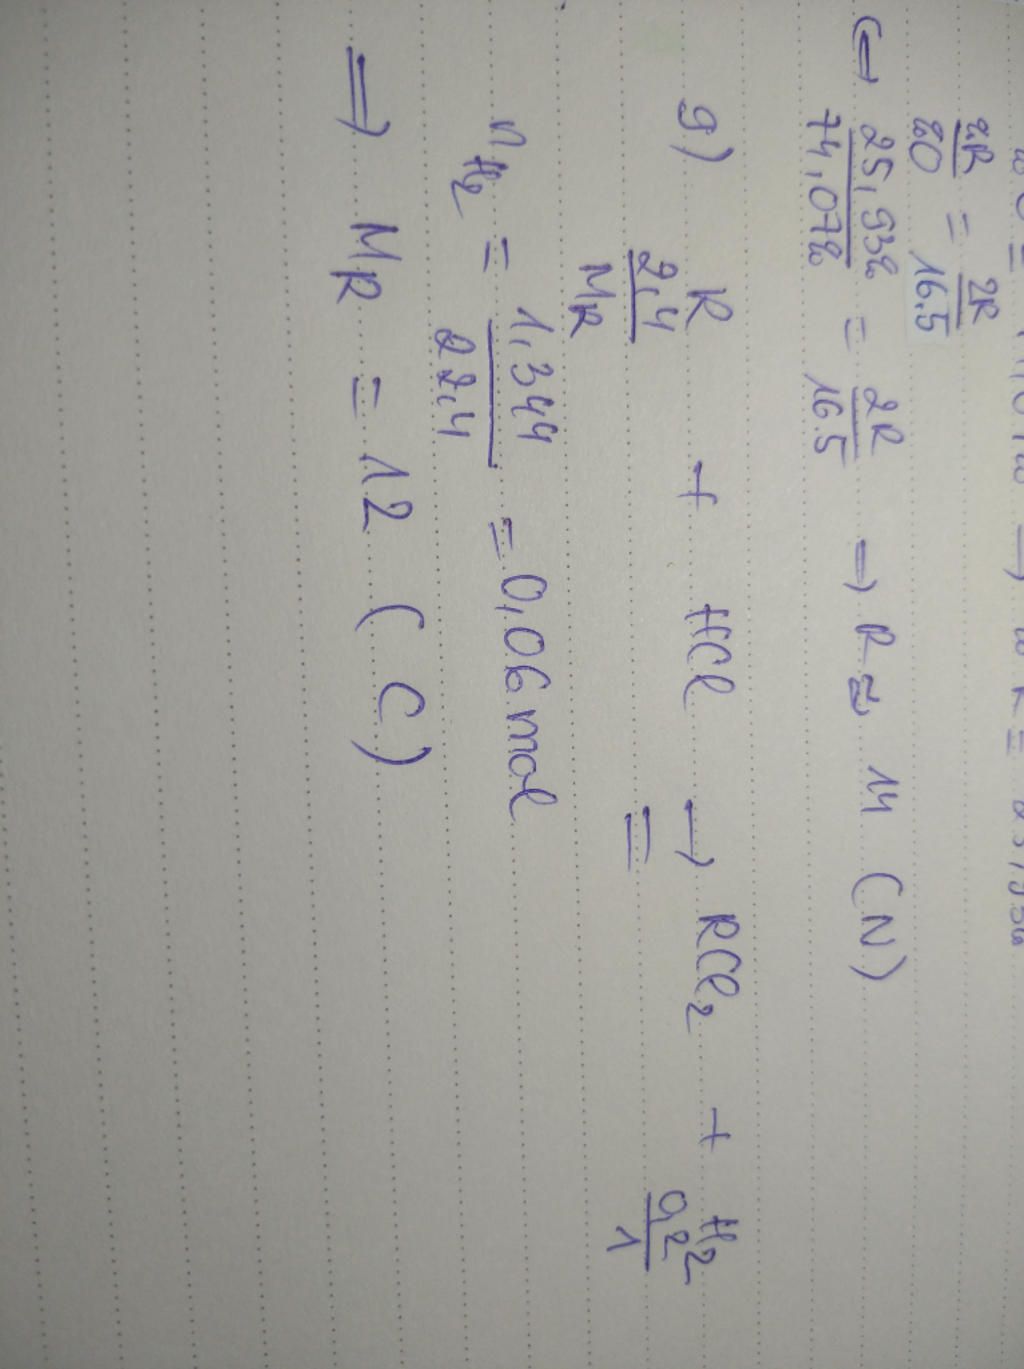 2R/80 = 2R/16.5
↔ 25,93%/74,07% = 2R/16.5 → R ≈ 14 (N)
g) R + HCl → RCl₂ + H₂
2,4/MR = 0,2/1
nH₂ = 1,344/22,4 = 0,06 mol
⇒ MR = 12 (C)